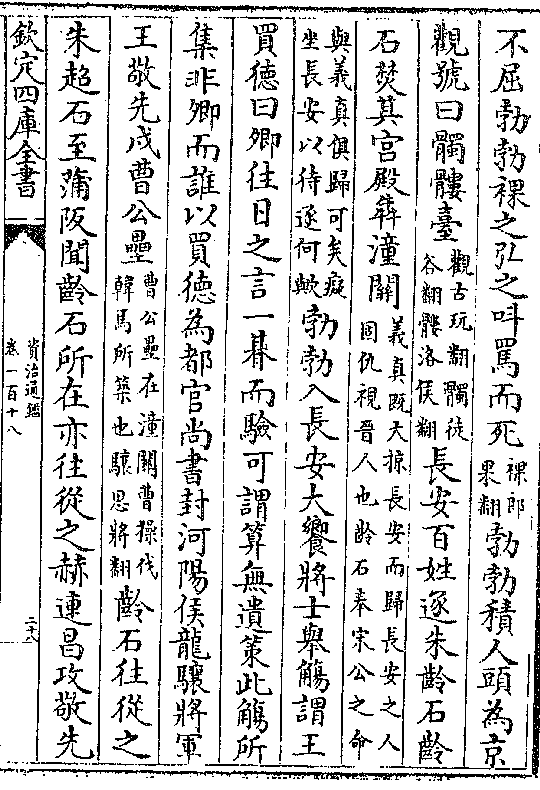 不屈勃勃裸之弘之叫罵而死裸郎果翻勃勃積人頭為京
觀號曰髑髏臺觀古玩翻髑徒谷翻髏洛侯翻長安百姓逐朱齡石齡
石焚其宮殿犇潼關義真既大掠長安而歸長安之人固仇視晉人也齡石奉宋公之命
與義真俱歸可矣癡坐長安以待逐何歟勃勃入長安大饗將士舉觴謂王
買德曰卿往日之言一朞而驗可謂算無遺策此觴所
集非卿而誰以買德為都官尚書封河陽侯龍驤將軍
王敬先戍曹公壘曹公壘在潼關曹操伐韓馬所築也驤思將翻齡石往從之
朱超石至蒲阪聞齡石所在亦往從之赫連昌攻敬先
欽定四庫全書
資治通鑑
卷一百十八
二十八